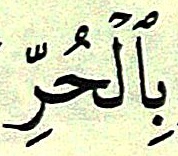 بِٱلۡحُرِّ